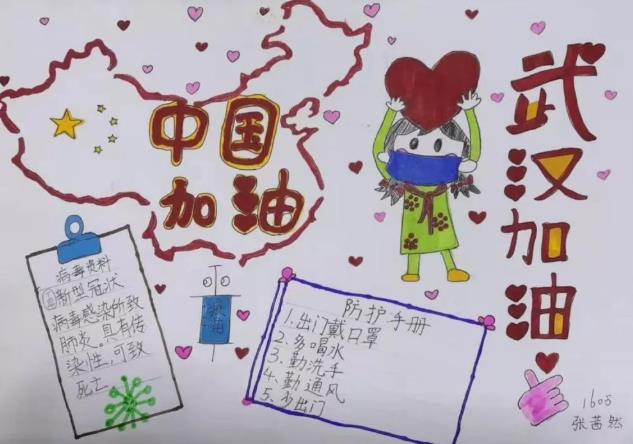 中国
加油
武汉加油
病毒资料
新型冠状
病毒感染所致
肺炎。具有传
染性,可致
死亡
防护手册
1.出门戴口罩
2.多喝水
3.勤洗手
4.勤通风
5.少出门
1605
张茜然